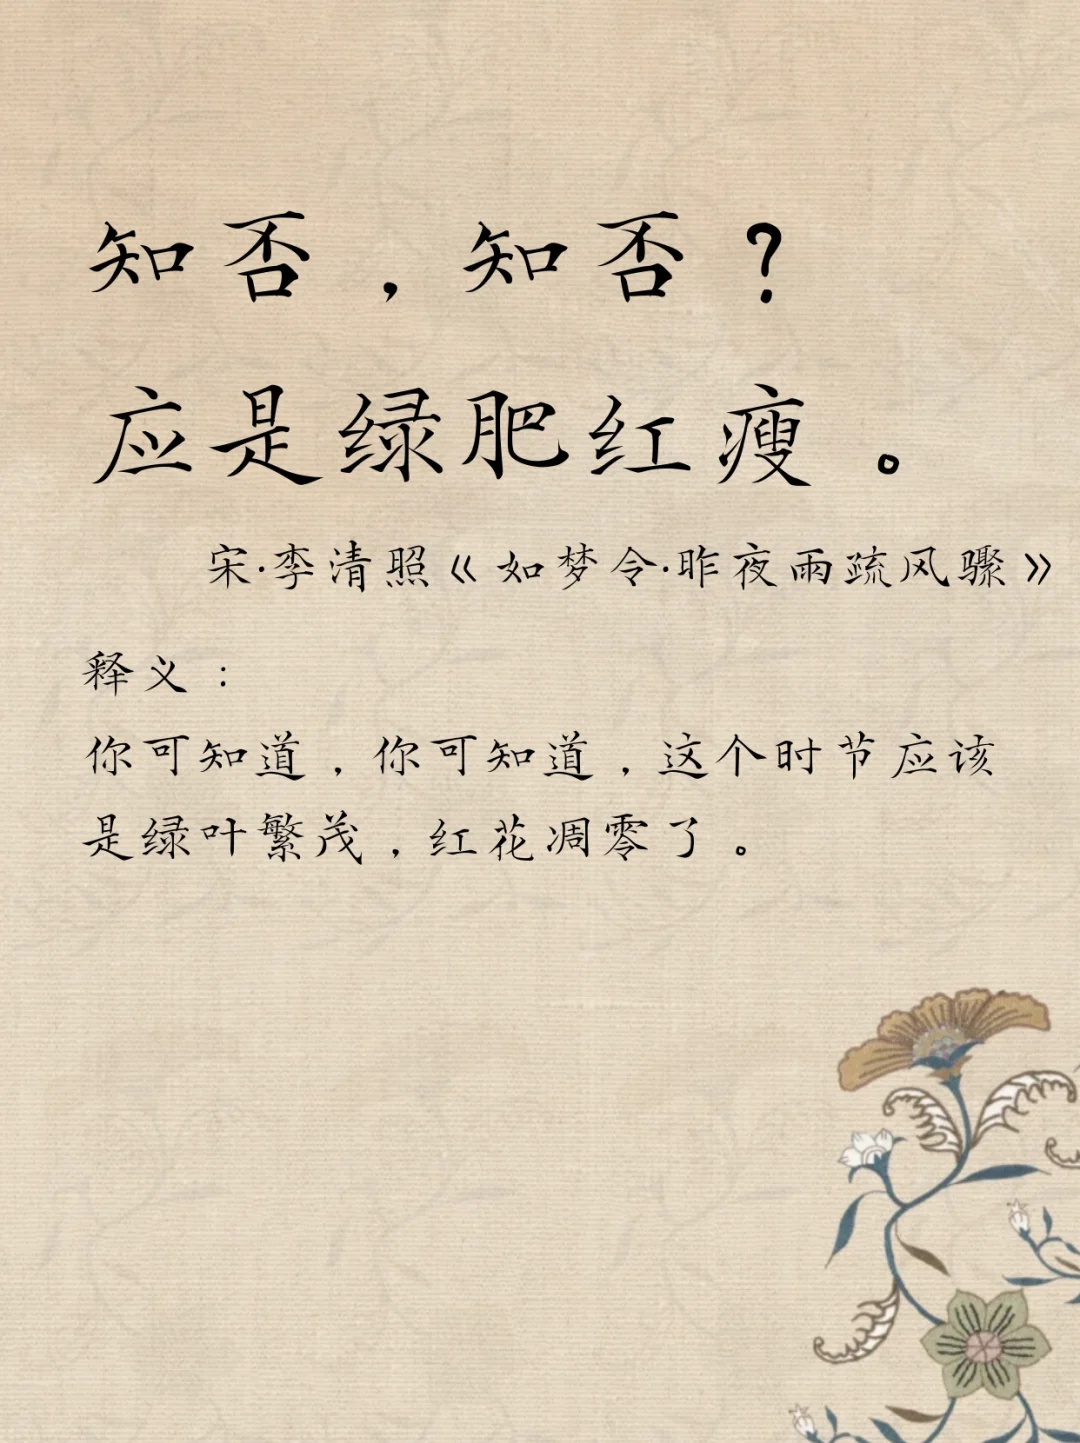 知否，知否？
应是绿肥红瘦。
宋·李清照《如梦令·昨夜雨疏风骤》
释义：
你可知道，你可知道，这个时节应该
是绿叶繁茂，红花凋零了。